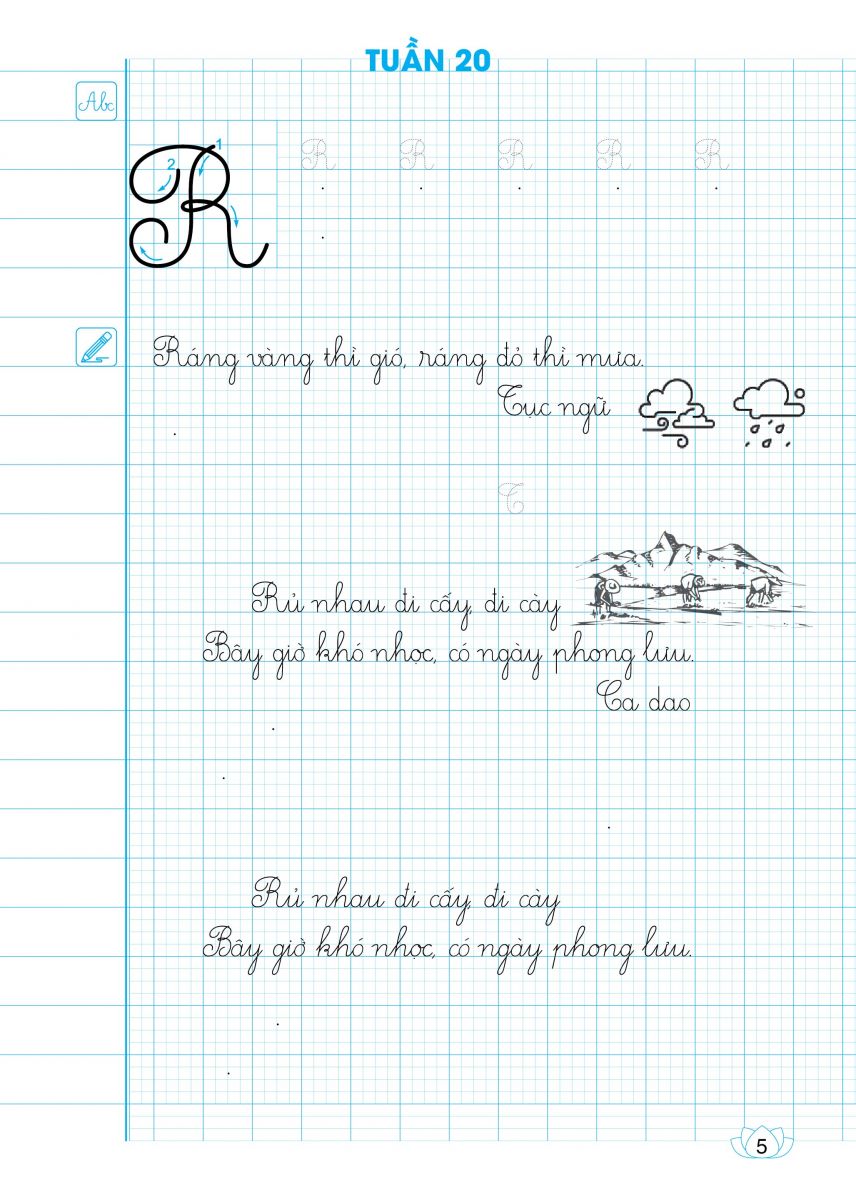 TUẦN 20
Abc
1
2
R R R R R
Ráng vàng thì gió, ráng đỏ thì mưa.
Tục ngữ
T
Rủ nhau đi cấy, đi cày
Bây giờ khó nhọc, có ngày phong lưu.
Ca dao
Rủ nhau đi cấy, đi cày
Bây giờ khó nhọc, có ngày phong lưu.
5